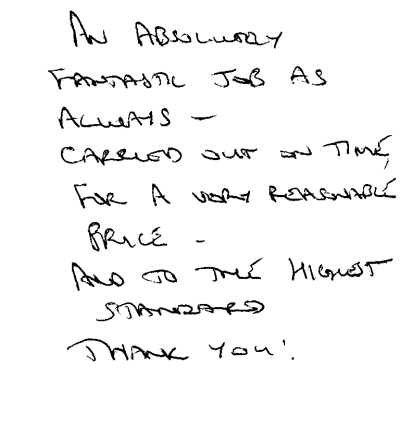 AN ABSOLUTELY
FANTASTIC JOB AS
ALWAYS -
CARRIED OUT ON TIME,
FOR A VERY REASONABLE
PRICE -
AND TO THE HIGHEST
STANDARD
THANK YOU!